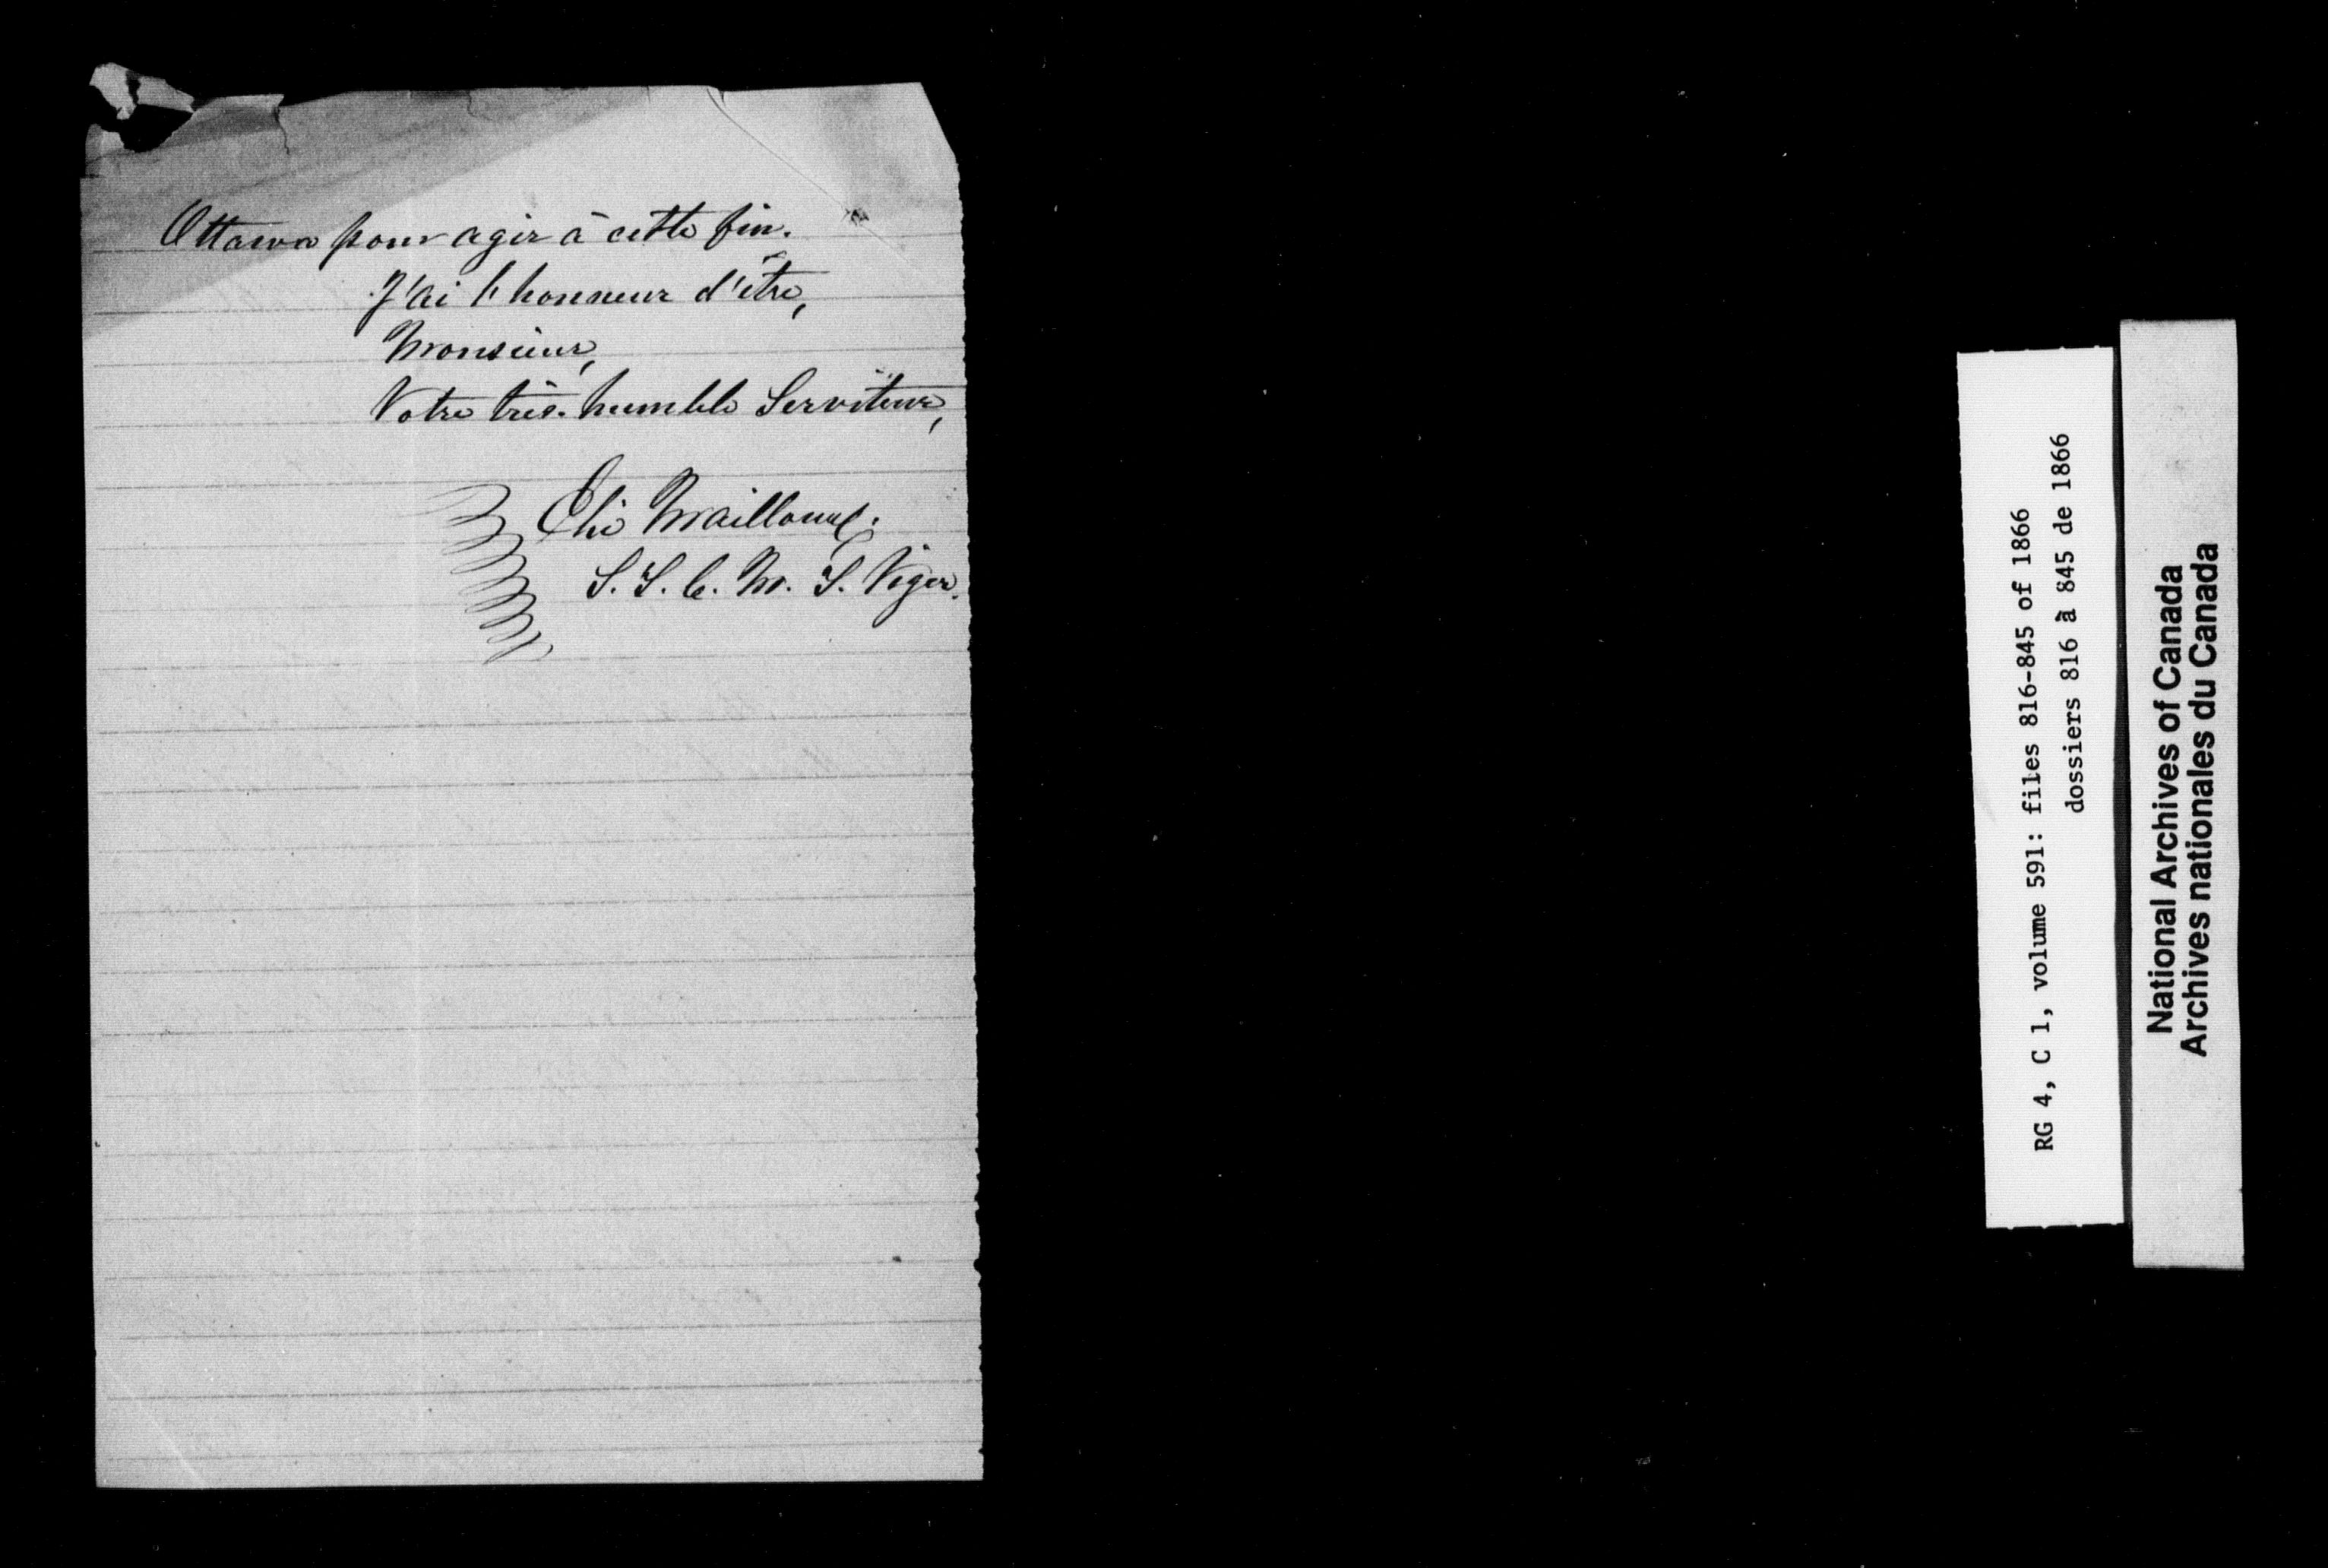 Ottawa pour agir à cette fin.
J'ai l'honneur d'être,
Monsieur,
Votre très-humble Serviteur,
Elie Mailloux.
S. S. C. M. S. Viger.
RG 4, C 1, volume 591: files 816-845 of 1866
dossiers 816 à 845 de 1866
National Archives of Canada
Archives nationales du Canada